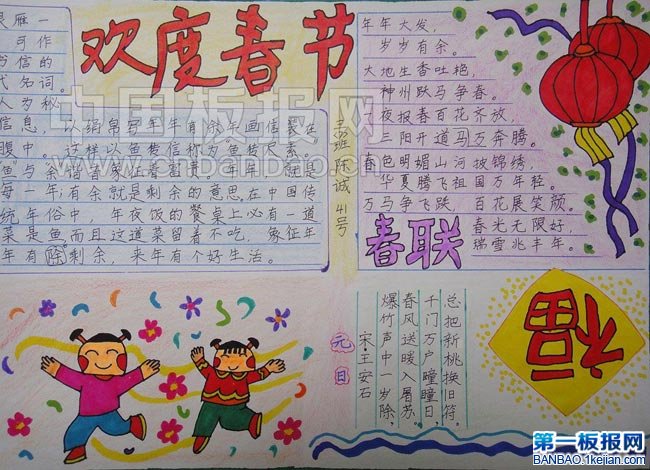 欢度春节
雁一
可作
书信的
代名词。
人为秘
信息,以绢帛写
腹中。这样以鱼传信称为鱼传尺素。
鱼与余谐音象征着富贵,年年
每一年;有余就是剩余的意思,在中国传
统年俗中,年夜饭的餐桌上必有一道
菜是鱼,而且这道菜留着不吃,象征年
年有除剩余,来年有个好生活。
班 陈诚 41号
年年大发,
岁岁有余。
大地生香吐艳,
神州跃马争春。
夜报春百花齐放,
三阳开道马万奔腾。
春色明媚山河披锦绣,
华夏腾飞祖国万年轻。
万马争飞跃,百花展笑颜。
春光无限好,
瑞雪兆丰年。
春联
元日
宋王安石
爆竹声中一岁除,
春风送暖入屠苏。
千门万户瞳瞳日,
总把新桃换旧符。
福
中国板报网
www.cnbanbao.cn
第一板报网
BANBAO.1kejian.com